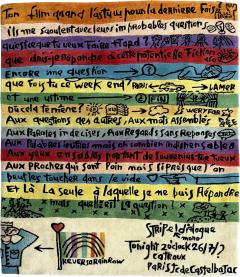 Ton film quand l'as tu vu pour la derniere fois
ils me saoulent avec leurs improbables questions
qu'est ce que tu veux faire + tard ?
que dois-je repondre à cette potentielle fiction
Encore une question
que fais tu ce week end ? PARIS LA MER
Et une ultime : FIN
D'a côté la même
Aux questions des autres, Aux mots Assemblés
Aux Paroles indecises, Aux Regards sans Reponses
Aux Palabres inutiles mais ô combien indispensables
Aux yeux ensablés portant de souvenirs
Aux Proches qui sont loin mais si Près que l'on
peut les toucher dans le vide
Et Là La seule à laquelle je ne puis Répondre
mais quelle est la question !
REVERSORAINBOW
Stripe le dialogue
mono
Tonight 20'clock 26/7/?
cafroux
Paris Jc de Castelbajac